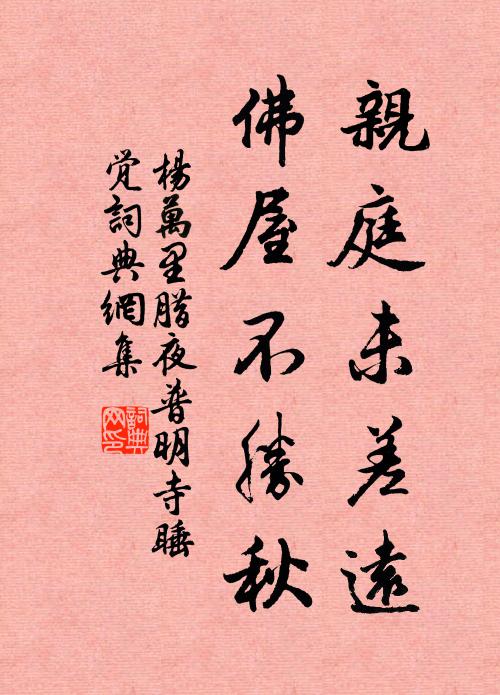 親庭未差遠
佛屋不勝秋
楊萬里腊夜普明寺睡
覺詞典網集
詞典
网印